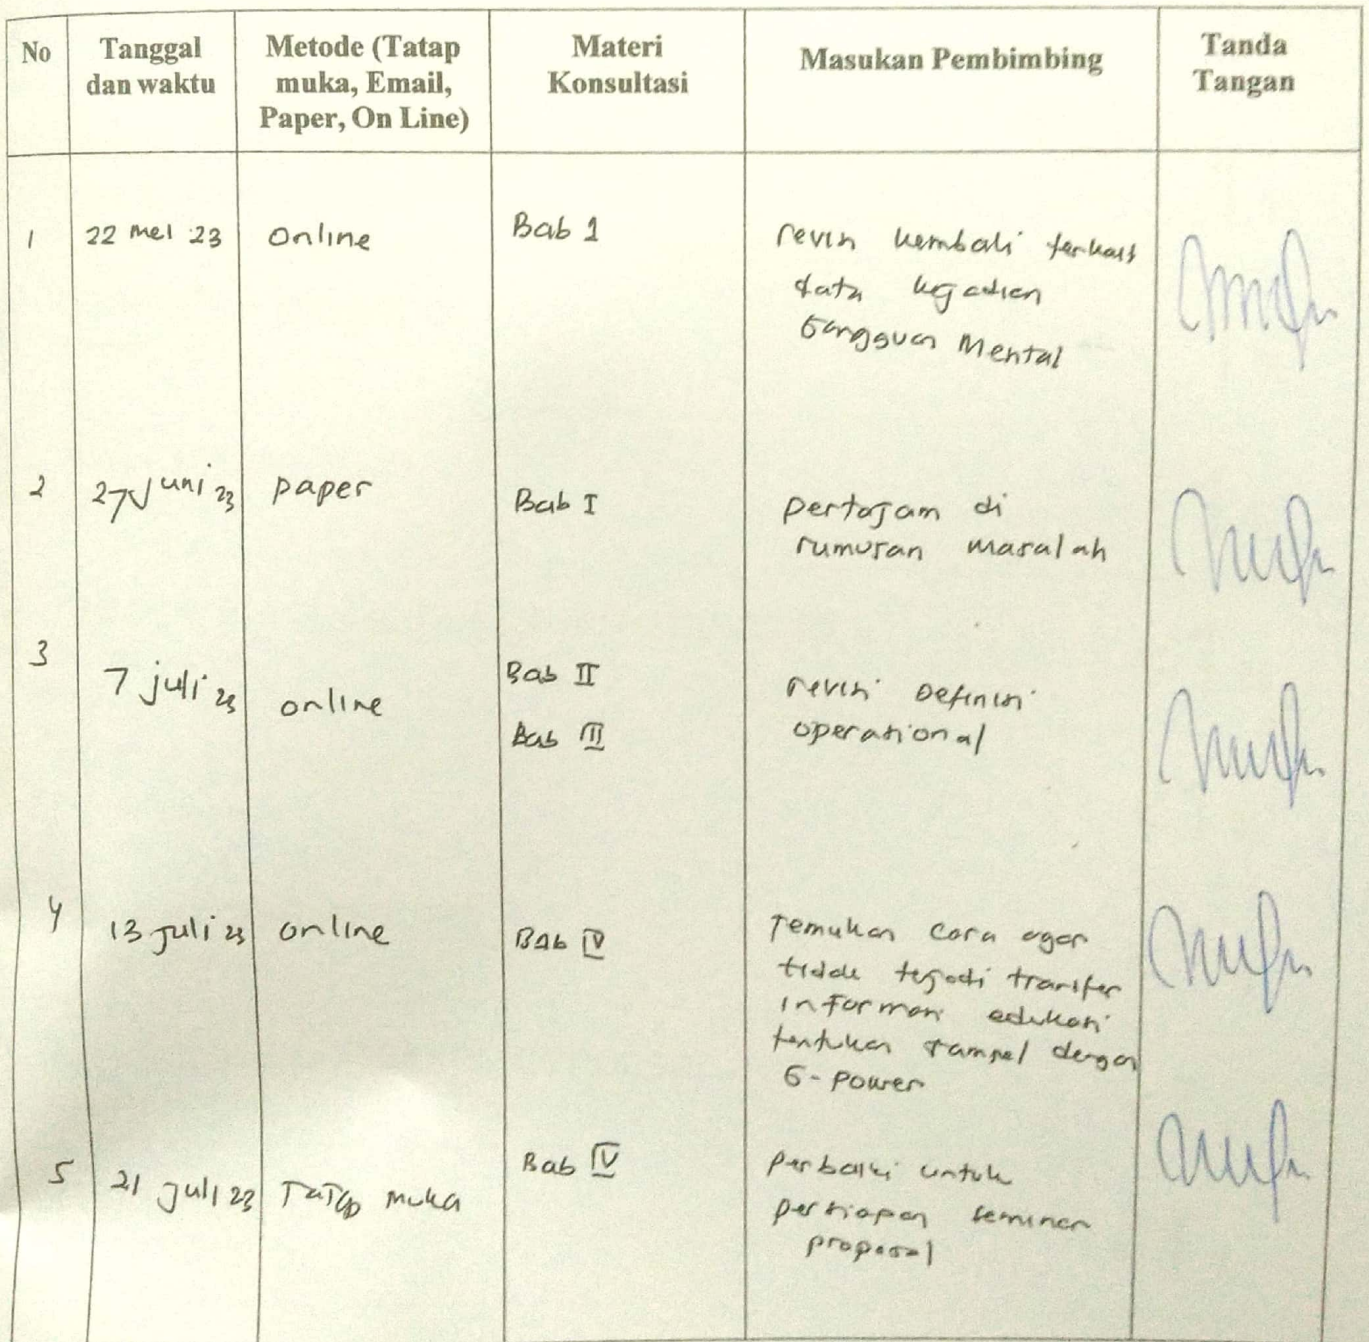 No
Tanggal
dan waktu
Metode (Tatap
muka, Email,
Paper, On Line)
Materi
Konsultasi
Masukan Pembimbing
Tanda
Tangan
1
22 Mei 23
online
Bab 1
revisi kembali terkait
data kejadian
Gangguan Mental
2
27 Juni 23
paper
Bab I
pertajam di
rumusan masalah
3
7 juli 23
online
Bab II
Bab III
revisi Definisi
operasional
4
13 juli 23
online
Bab IV
Temukan cara agar
tidak terjadi transfer
informasi edukasi
tentukan sampel dengan
G-power
5
21 juli 23
Tatap muka
Bab IV
perbaiki untuk
persiapan seminar
proposal